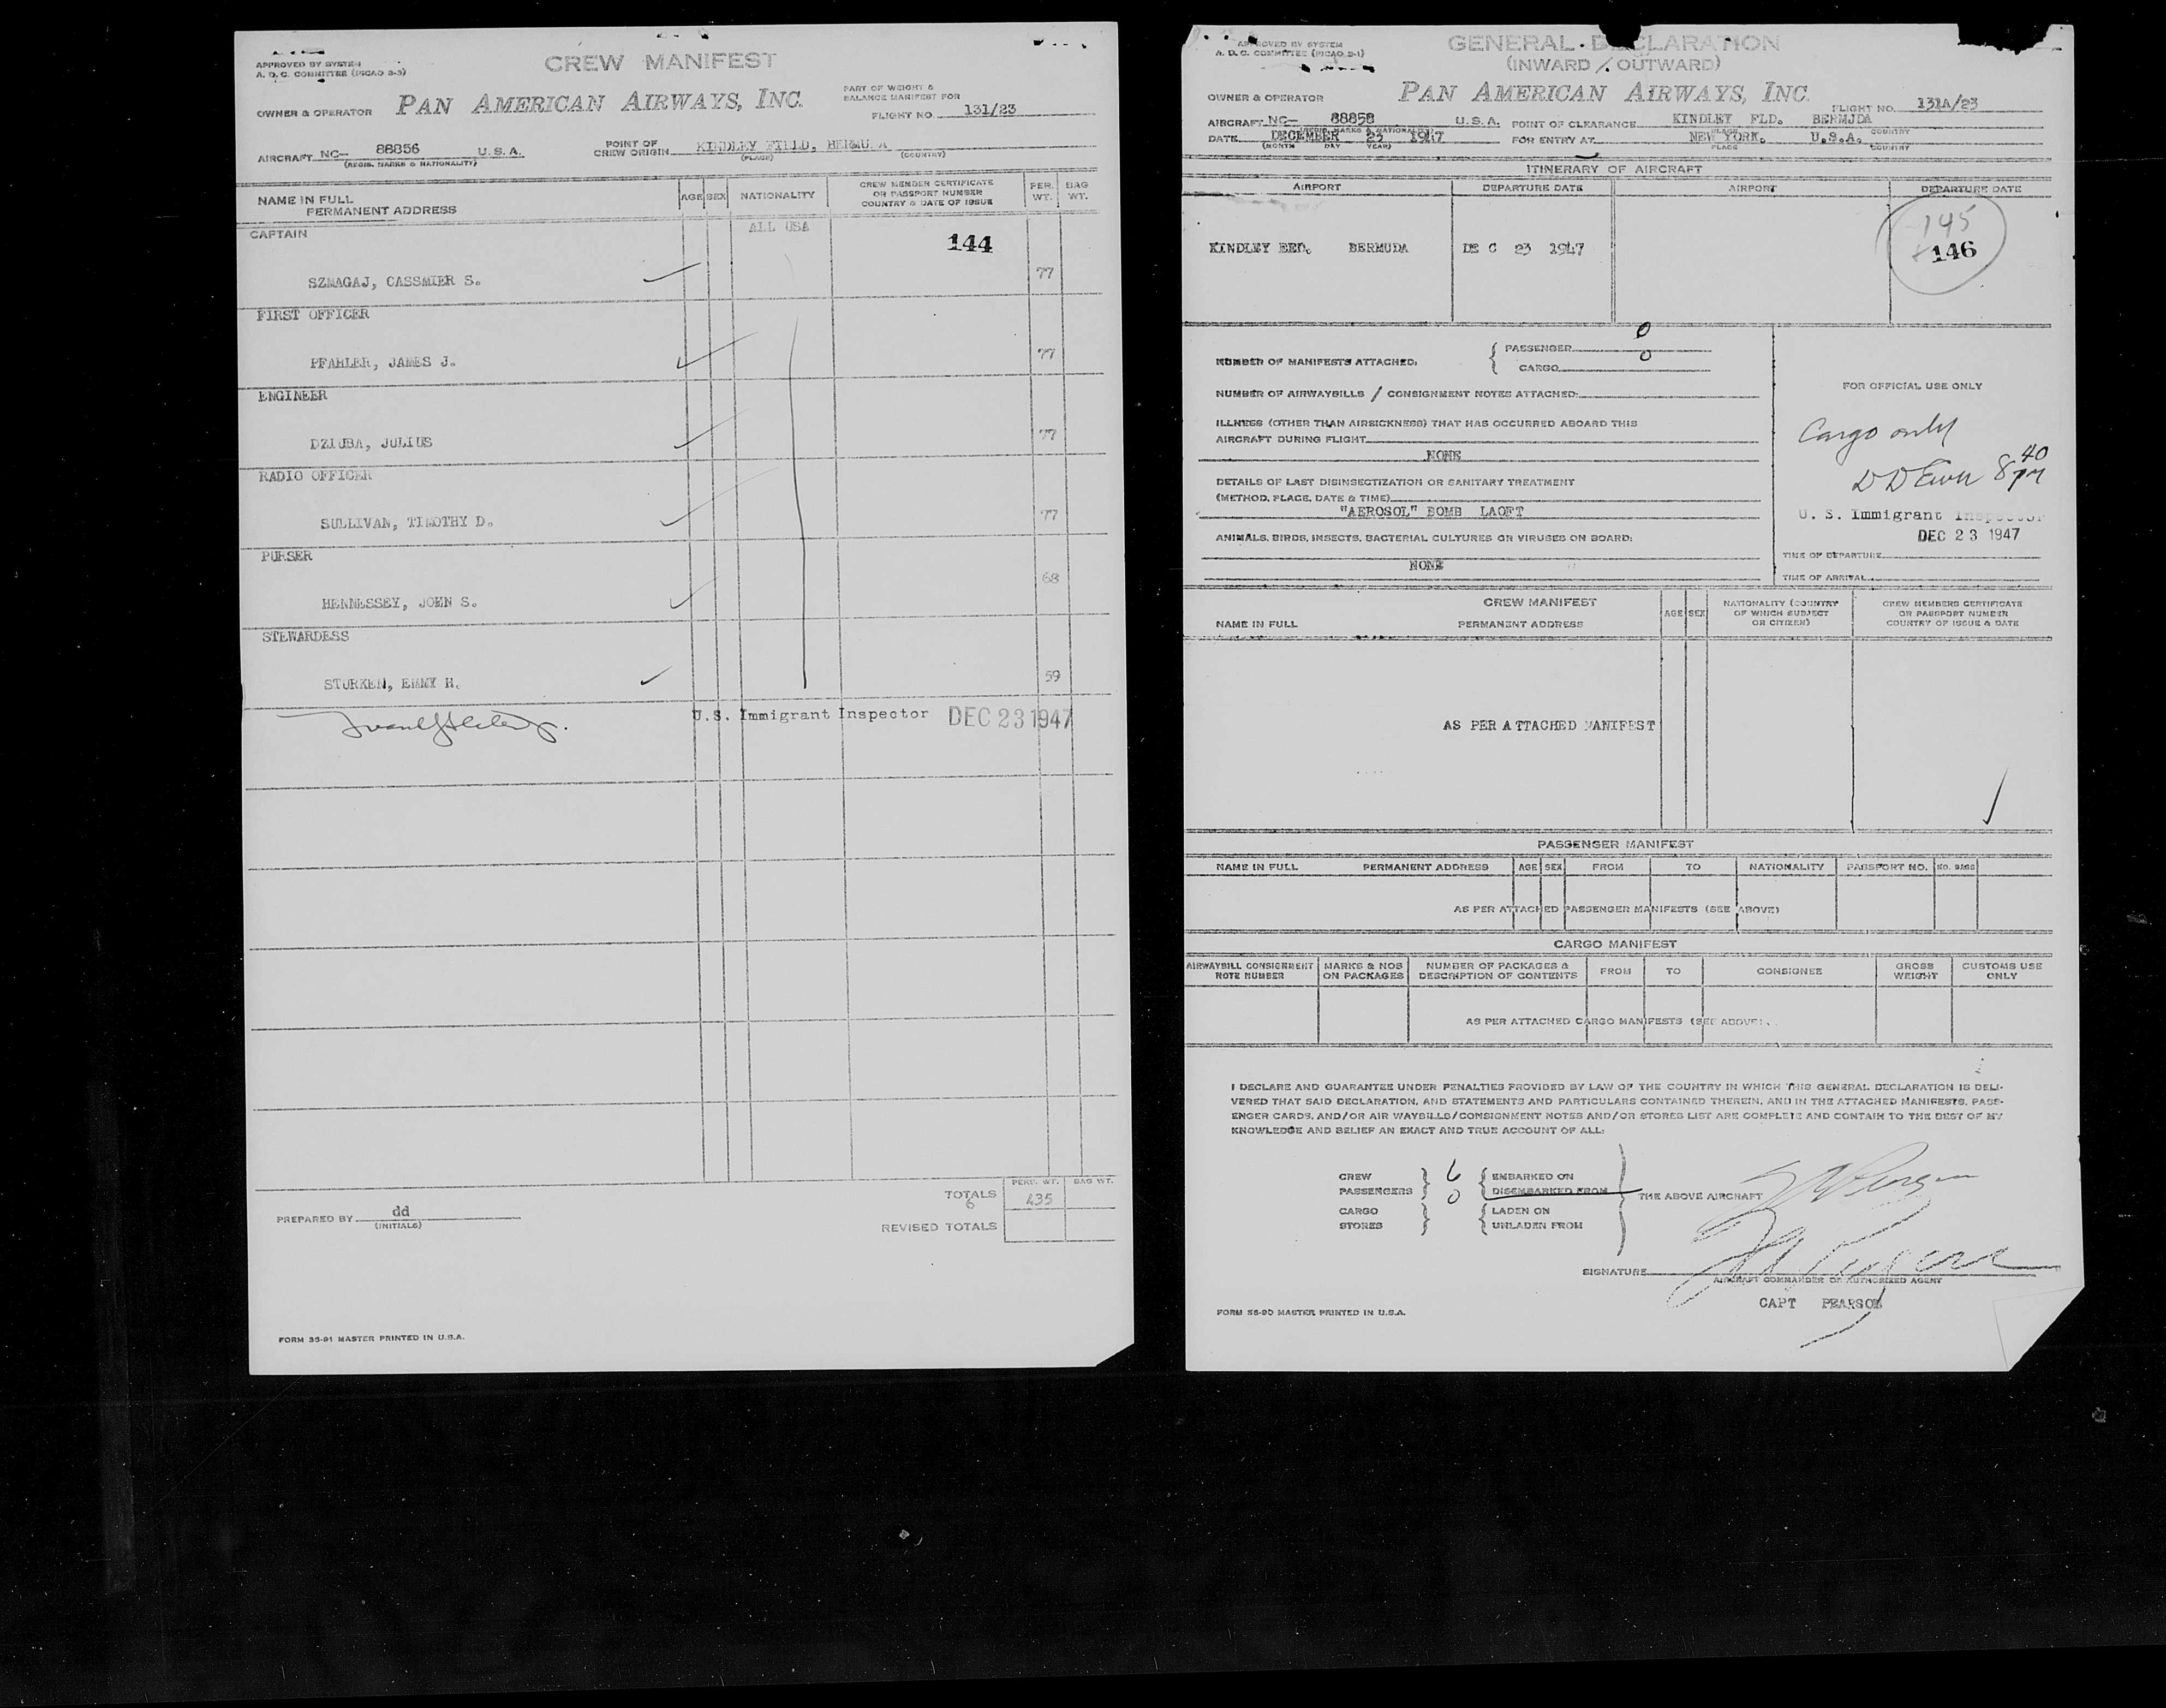 APPROVED BY SYSTEM
A. D. C. COMMITTEE (PICAO 3-3)
CREW MANIFEST
OWNER & OPERATOR PAN AMERICAN AIRWAYS, INC.
PART OF WEIGHT &
BALANCE MANIFEST FOR
FLIGHT NO. 131/23
AIRCRAFT NC- 88856 U.S.A.
(REGIS. MARKS & NATIONALITY)
POINT OF
CREW ORIGIN KINDLEY FIELD, BERMU A
(PLACE) (COUNTRY)
NAME IN FULL
PERMANENT ADDRESS
AGE SEX NATIONALITY
CREW MEMBER CERTIFICATE
OR PASSPORT NUMBER
COUNTRY & DATE OF ISSUE
PER. WT.
BAG WT.
CAPTAIN ALL USA
144
SZMAGAJ, CASSMIER S. 77
FIRST OFFICER
PFAHLER, JAMES J. 77
ENGINEER
DZIUBA, JULIUS 77
RADIO OFFICER
SULLIVAN, TIMOTHY D. 77
PURSER
HENNESSEY, JOHN S. 68
STEWARDESS
STURKEN, EMMY H. 59
U.S. Immigrant Inspector DEC 23 1947
PERS. WT. BAG WT.
TOTALS
6 435
REVISED TOTALS
PREPARED BY dd
(INITIALS)
FORM 36-91 MASTER PRINTED IN U.S.A.
APPROVED BY SYSTEM
A. D. C. COMMITTEE (PICAO 3-1)
GENERAL DECLARATION
(INWARD / OUTWARD)
OWNER & OPERATOR PAN AMERICAN AIRWAYS, INC.
FLIGHT NO. 131A/23
AIRCRAFT NC- 88858 U.S.A. POINT OF CLEARANCE KINDLEY FLD. BERMJDA
(REGIS. MARKS & NATIONALITY) PLACE COUNTRY
DATE DECEMBER 23 1947 FOR ENTRY AT NEW YORK. U.S.A.
(MONTH DAY YEAR) PLACE COUNTRY
ITINERARY OF AIRCRAFT
AIRPORT DEPARTURE DATE AIRPORT DEPARTURE DATE
145
KINDLEY BED. BERMUDA DE C 23 1947 146
NUMBER OF MANIFESTS ATTACHED:
PASSENGER 0
CARGO 0
NUMBER OF AIRWAYBILLS / CONSIGNMENT NOTES ATTACHED:
ILLNESS (OTHER THAN AIRSICKNESS) THAT HAS OCCURRED ABOARD THIS
AIRCRAFT DURING FLIGHT
NONE
DETAILS OF LAST DISINSECTIZATION OR SANITARY TREATMENT
(METHOD, PLACE, DATE & TIME)
"AEROSOL" BOMB LAOFT
ANIMALS, BIRDS, INSECTS, BACTERIAL CULTURES OR VIRUSES ON BOARD:
NONE
FOR OFFICIAL USE ONLY
Cargo only
8 40 PM
U. S. Immigrant Inspector
DEC 23 1947
TIME OF DEPARTURE
TIME OF ARRIVAL
CREW MANIFEST
NAME IN FULL PERMANENT ADDRESS
AGE SEX
NATIONALITY (COUNTRY
OF WHICH SUBJECT
OR CITIZEN)
CREW MEMBERS CERTIFICATE
OR PASSPORT NUMBER
COUNTRY OF ISSUE & DATE
AS PER ATTACHED MANIFEST
PASSENGER MANIFEST
NAME IN FULL PERMANENT ADDRESS AGE SEX FROM TO NATIONALITY PASSPORT NO. NO. BAGS
AS PER ATTACHED PASSENGER MANIFESTS (SEE ABOVE)
CARGO MANIFEST
AIRWAYBILL CONSIGNMENT
NOTE NUMBER
MARKS & NOS
ON PACKAGES
NUMBER OF PACKAGES &
DESCRIPTION OF CONTENTS
FROM TO CONSIGNEE
GROSS
WEIGHT
CUSTOMS USE
ONLY
AS PER ATTACHED CARGO MANIFESTS (SEE ABOVE)
I DECLARE AND GUARANTEE UNDER PENALTIES PROVIDED BY LAW OF THE COUNTRY IN WHICH THIS GENERAL DECLARATION IS DELI-
VERED THAT SAID DECLARATION, AND STATEMENTS AND PARTICULARS CONTAINED THEREIN, AND IN THE ATTACHED MANIFESTS, PASS-
ENGER CARDS, AND/OR AIR WAYBILLS/CONSIGNMENT NOTES AND/OR STORES LIST ARE COMPLETE AND CONTAIN TO THE BEST OF MY
KNOWLEDGE AND BELIEF AN EXACT AND TRUE ACCOUNT OF ALL:
CREW 6 EMBARKED ON
PASSENGERS 0 DISEMBARKED FROM THE ABOVE AIRCRAFT
CARGO LADEN ON
STORES UNLADEN FROM
SIGNATURE
AIRCRAFT COMMANDER OR AUTHORIZED AGENT
CAPT PEARSON
FORM 36-90 MASTER PRINTED IN U.S.A.